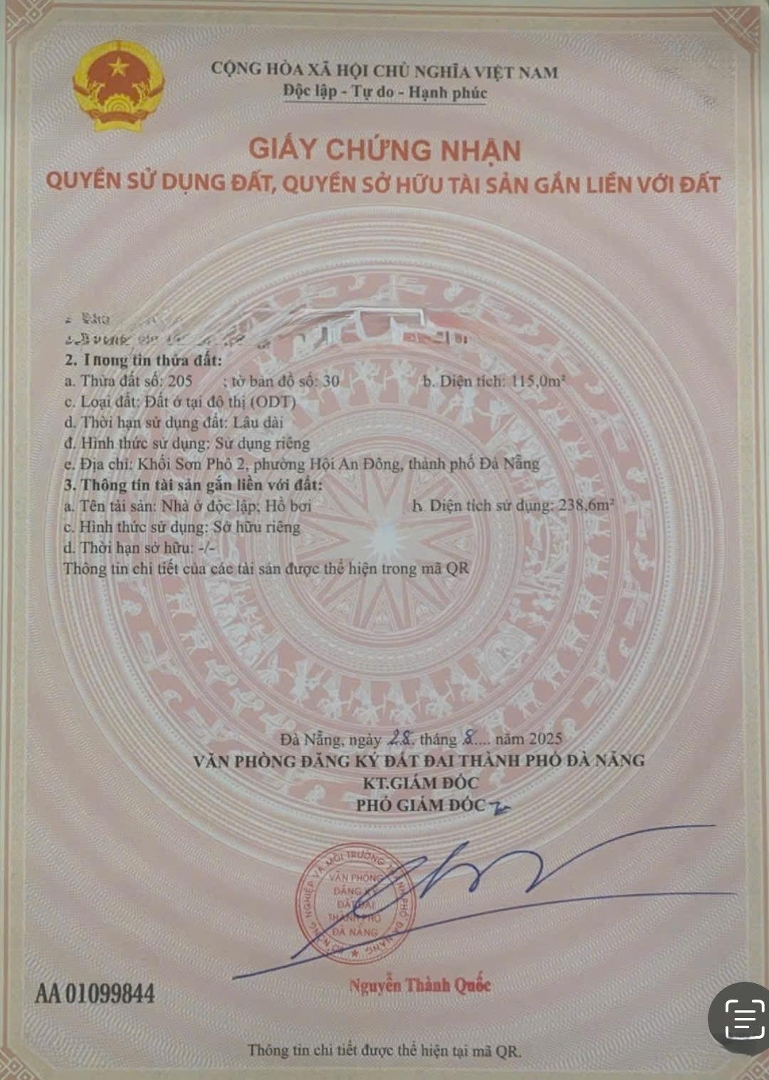 CỘNG HÒA XÃ HỘI CHỦ NGHĨA VIỆT NAM
Độc lập - Tự do - Hạnh phúc
GIẤY CHỨNG NHẬN
QUYỀN SỬ DỤNG ĐẤT, QUYỀN SỞ HỮU TÀI SẢN GẮN LIỀN VỚI ĐẤT
2. Thong tin thửa đất:
a. Thửa đất số: 205 ; tờ bản đồ số: 30 b. Diện tích: 115,0m²
c. Loại đất: Đất ở tại đô thị (ODT)
d. Thời hạn sử dụng đất: Lâu dài
đ. Hình thức sử dụng: Sử dụng riêng
e. Địa chỉ: Khối Sơn Phô 2, phường Hội An Đông, thành phố Đà Nẵng
3. Thông tin tài sản gắn liền với đất:
a. Tên tài sản: Nhà ở độc lập; Hồ bơi b. Diện tích sử dụng: 238,6m²
c. Hình thức sử dụng: Sở hữu riêng
d. Thời hạn sở hữu: -/-
Thông tin chi tiết của các tài sản được thể hiện trong mã QR
Đà Nẵng, ngày 28. tháng 8.... năm 2025
VĂN PHÒNG ĐĂNG KÝ ĐẤT ĐAI THÀNH PHỐ ĐÀ NẴNG
KT.GIÁM ĐỐC
PHÓ GIÁM ĐỐC
SỞ NÔNG NGHIỆP VÀ MÔI TRƯỜNG THÀNH PHỐ ĐÀ NẴNG
VĂN PHÒNG
ĐĂNG KÝ
ĐẤT ĐAI
THÀNH PHỐ
ĐÀ NẴNG
Nguyễn Thành Quốc
AA 01099844
Thông tin chi tiết được thể hiện tại mã QR.